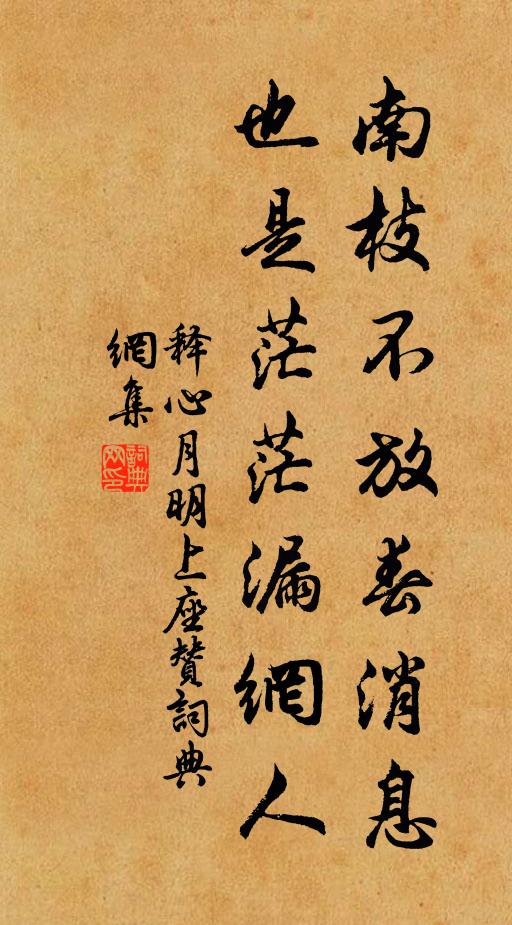 南枝不放春消息
也是茫茫漏網人
释心月明上座贊詞典
網集
詞典
网印